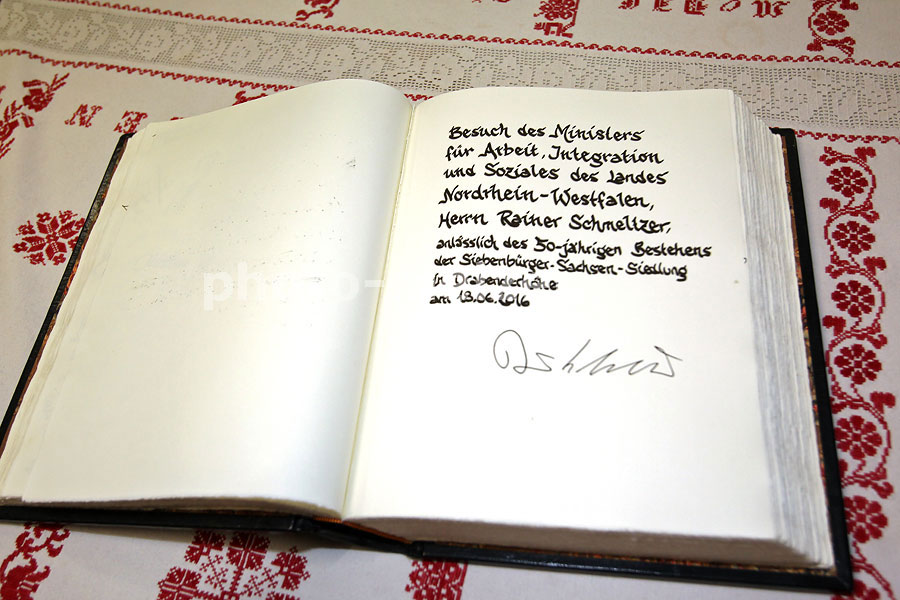 Besuch des Ministers
für Arbeit, Integration
und Soziales des Landes
Nordrhein-Westfalen,
Herrn Rainer Schmeltzer,
anlässlich des 50-jährigen Bestehens
der Siebenbürger-Sachsen-Siedlung
in Drabenderhöhe
am 18.06.2016